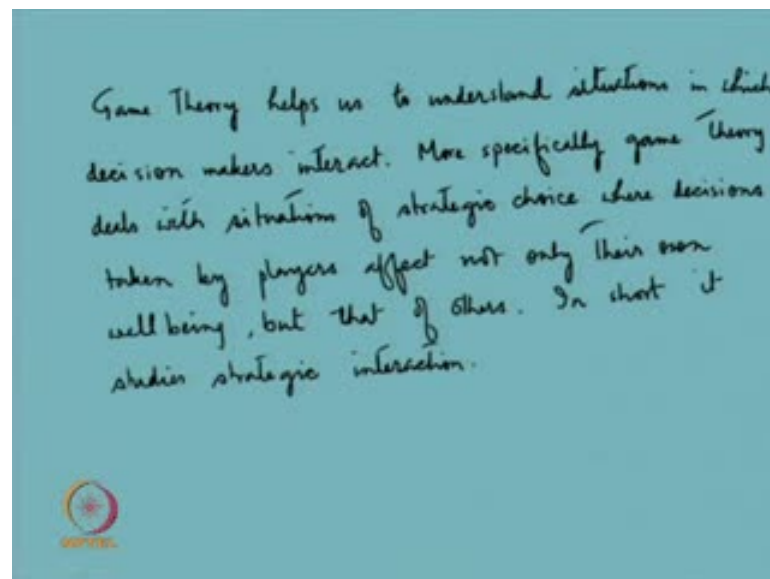 Game Theory helps us to understand situations in which
decision makers interact. More specifically game Theory
deals with situations of strategic choice where decisions
taken by players affect not only Their own
well being, but that of others. In short it
studies strategic interaction.
NPTEL